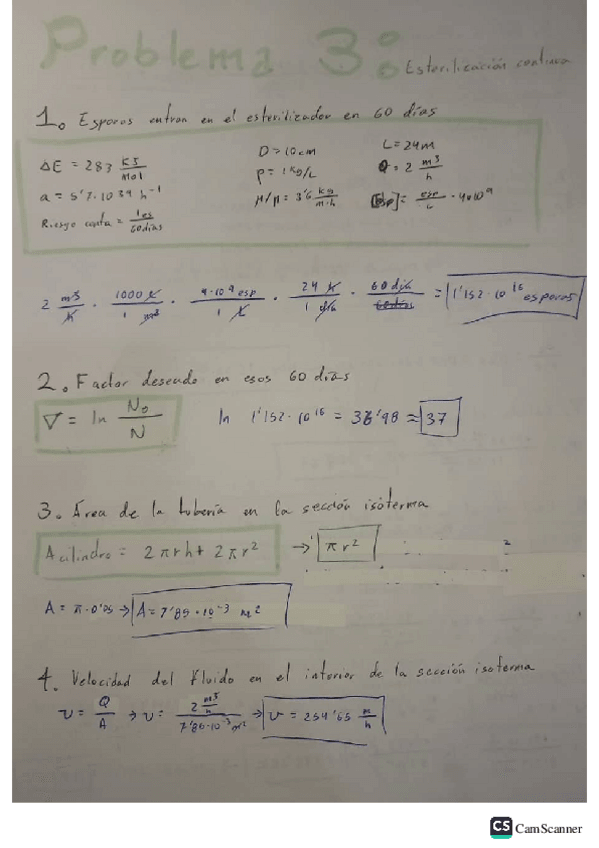 Problema 3:
Esterilización continua
1. Esporos entran en el esterilizador en 60 días
ΔE = 283 KJ/Mol D = 10cm L = 24m
a = 5'7·10^39 h^-1 ρ = 1 KG/L Q = 2 m³/h
Riesgo conta = 1es/60días μ/ρ = 3'6 kg/m·h = esp/L · 4·10^9
2 m³/h · 1000 L/1 m³ · 4·10^9 esp/1 L · 24 h/1 día · 60 día/60días = 1'152·10^16 esporos
2. Factor deseado en esos 60 días
∇ = ln No/N ln 1'152·10^16 = 36'98 ≈ 37
3. Área de la tubería en la sección isoterma
A cilindro = 2πrh + 2πr² → πr² 2
A = π·0'05 → A = 7'85·10^-3 m²
4. Velocidad del fluido en el interior de la sección isoterma
v = Q/A → v = 2 m³/h / 7'85·10^-3 m² → v = 254'65 m/h
CS CamScanner